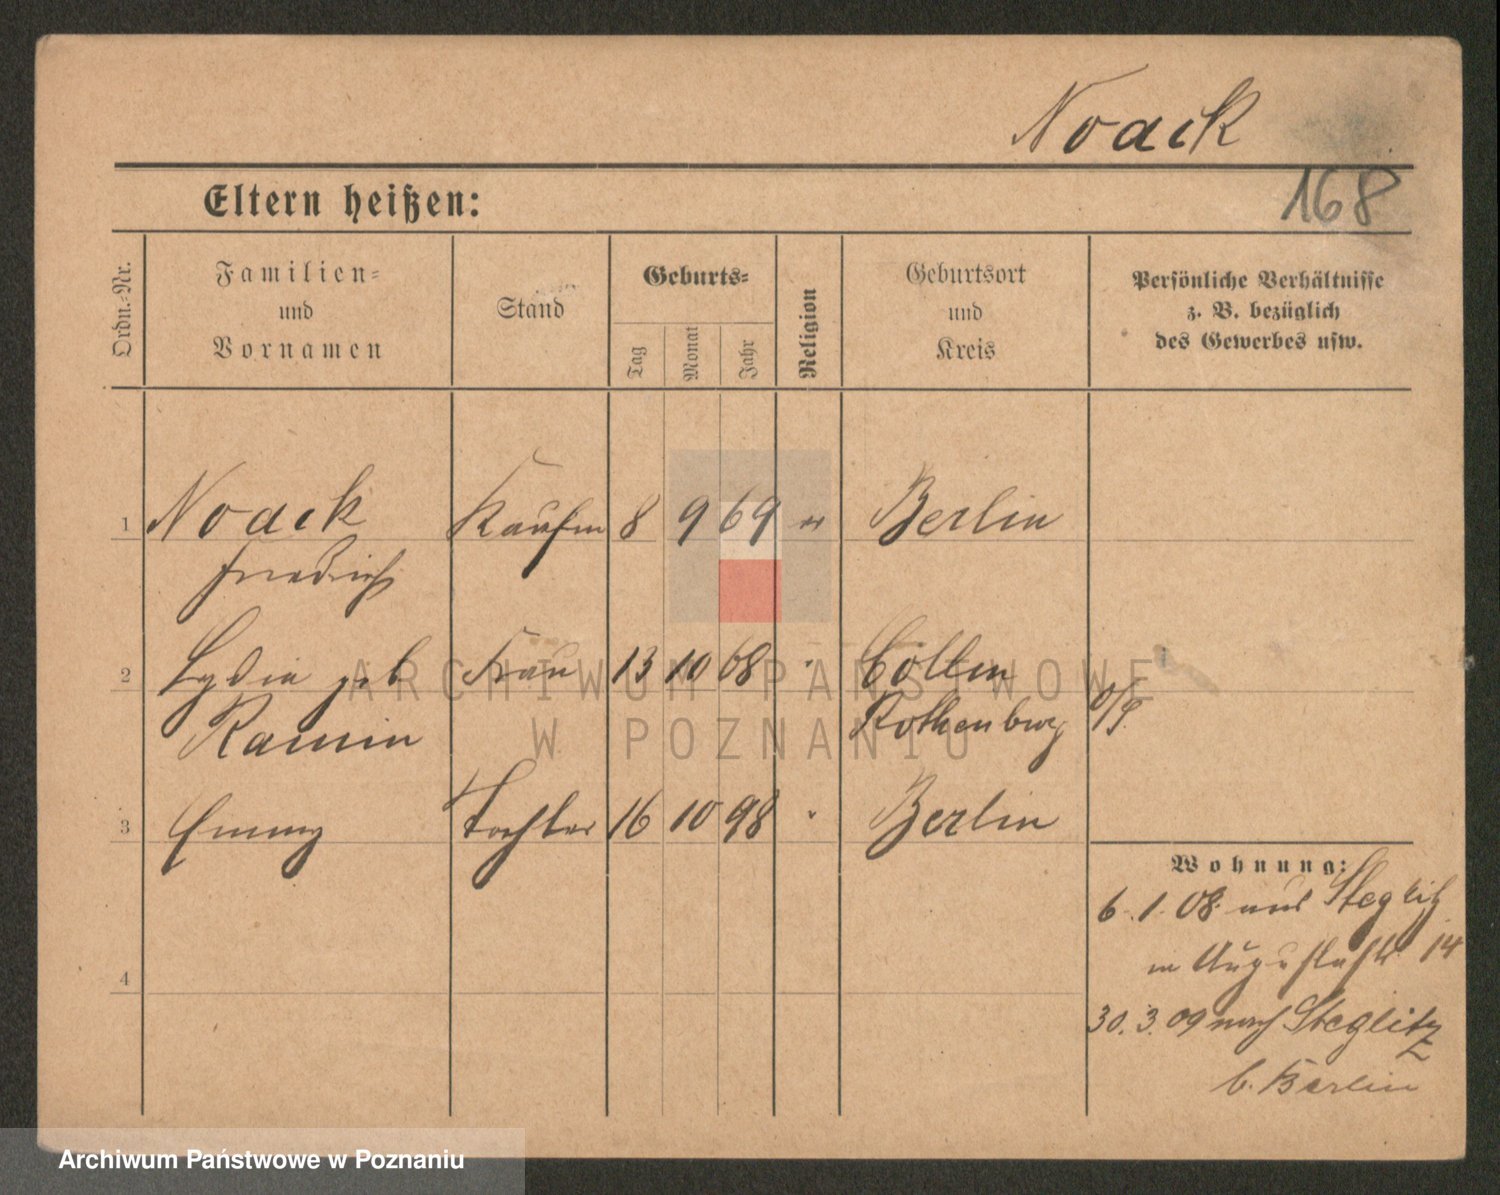 Noack
168
Eltern heißen:
Ordn.-Nr.
Familien-
und
Vornamen
Stand
Geburts-
Tag
Monat
Jahr
Religion
Geburtsort
und
Kreis
Persönliche Verhältnisse
z. B. bezüglich
des Gewerbes usw.
1 Noack Kaufm 8 9 69 Berlin
Friedrich
2 Lydia geb Frau 13 10 68 " Collm
Ramin Rothenburg o/S.
3 Emmy Tochter 16 10 98 " Berlin
4
Wohnung:
6.1.08 aus Steglitz
in Augustastr 14
30.3.09 nach Steglitz
b. Berlin
ARCHIWUM PAŃSTWOWE
W POZNANIU
Archiwum Państwowe w Poznaniu